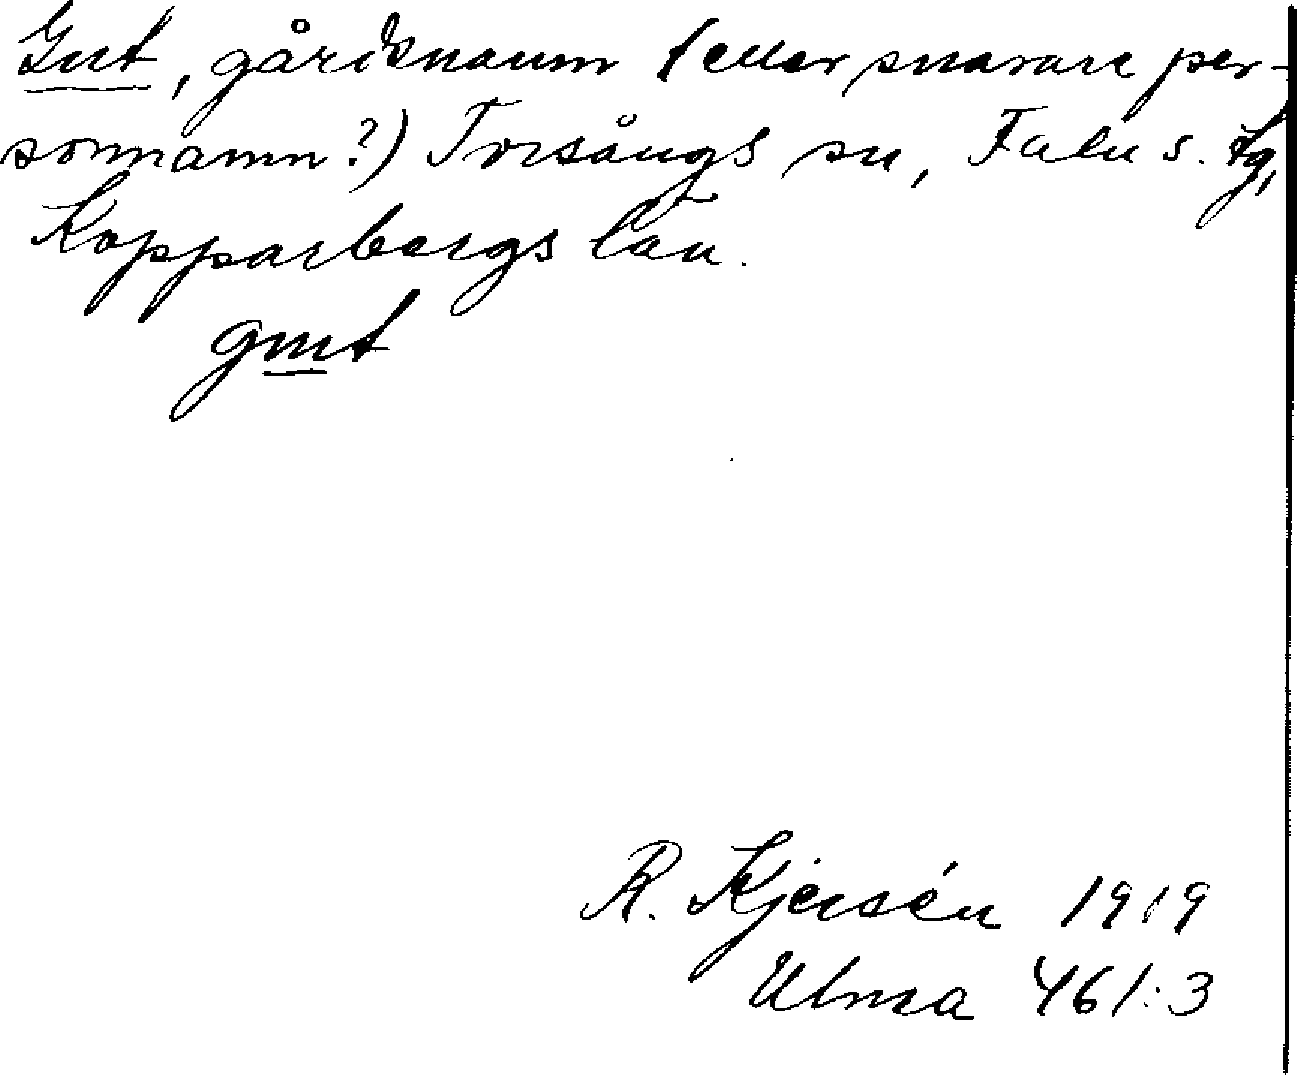 Gut, gårdsnamn (eller snarare per-
sonnamn?) Torsångs sn, Falu s. tg,
Kopparbergs län.
gut
R. Kjersén 1919
Ulma 461:3